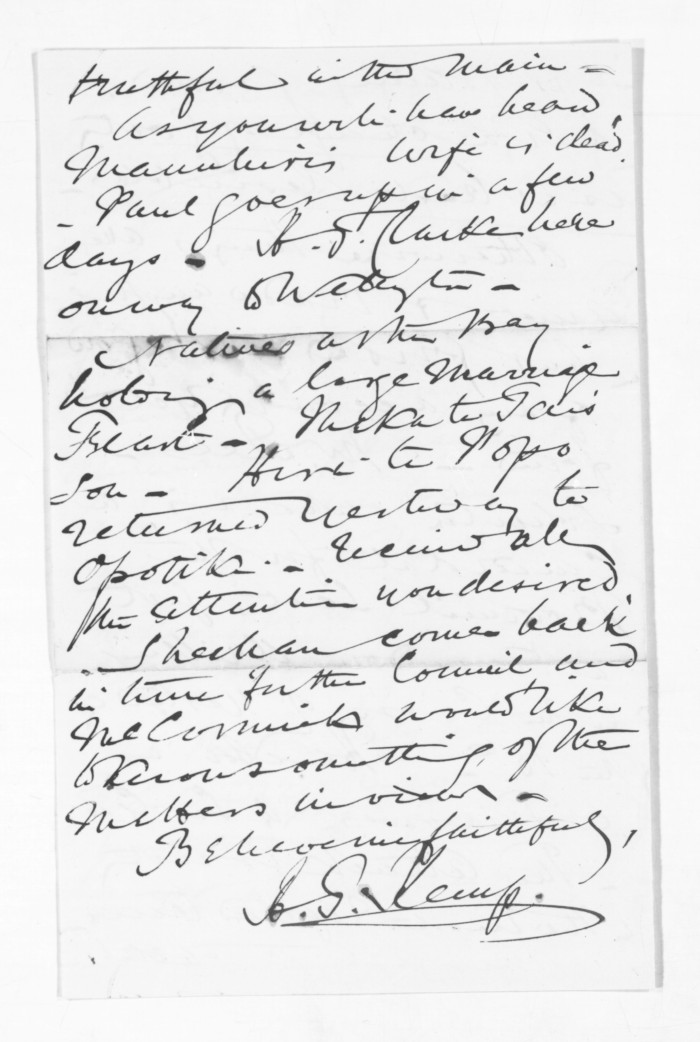 truthful in the main -
As you will have heard
Manuhiri's wife is dead.
- Paul goes up in a few
days - H. T. Clarke here
on way to Wellington -
Natives at the Bay
holding a large Marriage
Feast - te
son - Hira te Popo
returned yesterday to
Opotiki - received all
the attention you desired.
- Sheehan comes back
in time for the Council and
McCormick would like
to know something of the
matters in view -
Believe me faithfully,
Kemp.